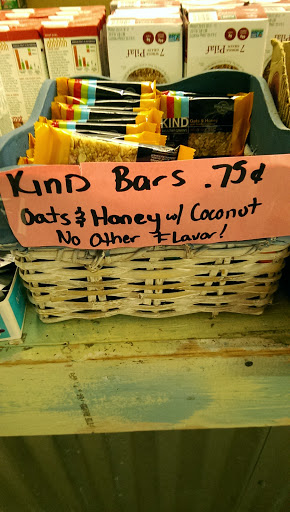 7 Pilaf
7 Pilaf
KIND
Oats & Honey
KIND Bars .75¢
Oats & Honey w/ Coconut
No Other Flavor!